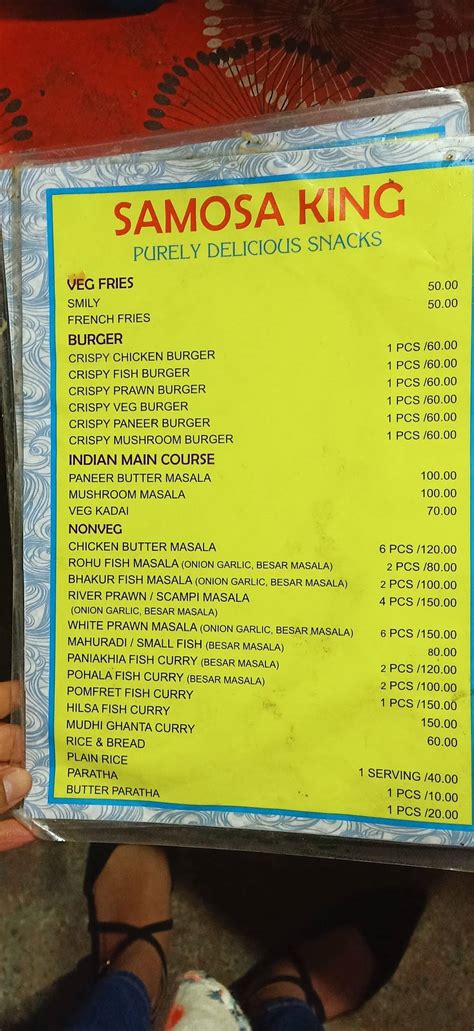 SAMOSA KING
PURELY DELICIOUS SNACKS
VEG FRIES
SMILY 50.00
FRENCH FRIES 50.00
BURGER
CRISPY CHICKEN BURGER 1 PCS /60.00
CRISPY FISH BURGER 1 PCS /60.00
CRISPY PRAWN BURGER 1 PCS /60.00
CRISPY VEG BURGER 1 PCS /60.00
CRISPY PANEER BURGER 1 PCS /60.00
CRISPY MUSHROOM BURGER 1 PCS /60.00
INDIAN MAIN COURSE
PANEER BUTTER MASALA 100.00
MUSHROOM MASALA 100.00
VEG KADAI 70.00
NONVEG
CHICKEN BUTTER MASALA 6 PCS /120.00
ROHU FISH MASALA (ONION GARLIC, BESAR MASALA) 2 PCS /80.00
BHAKUR FISH MASALA (ONION GARLIC, BESAR MASALA) 2 PCS /100.00
RIVER PRAWN / SCAMPI MASALA 4 PCS /150.00
(ONION GARLIC, BESAR MASALA)
WHITE PRAWN MASALA (ONION GARLIC, BESAR MASALA) 6 PCS /150.00
MAHURADI / SMALL FISH (BESAR MASALA) 80.00
PANIAKHIA FISH CURRY (BESAR MASALA) 2 PCS /120.00
POHALA FISH CURRY (BESAR MASALA) 2 PCS /100.00
POMFRET FISH CURRY 1 PCS /150.00
HILSA FISH CURRY 150.00
MUDHI GHANTA CURRY 60.00
RICE & BREAD
PLAIN RICE 1 SERVING /40.00
PARATHA 1 PCS /10.00
BUTTER PARATHA 1 PCS /20.00